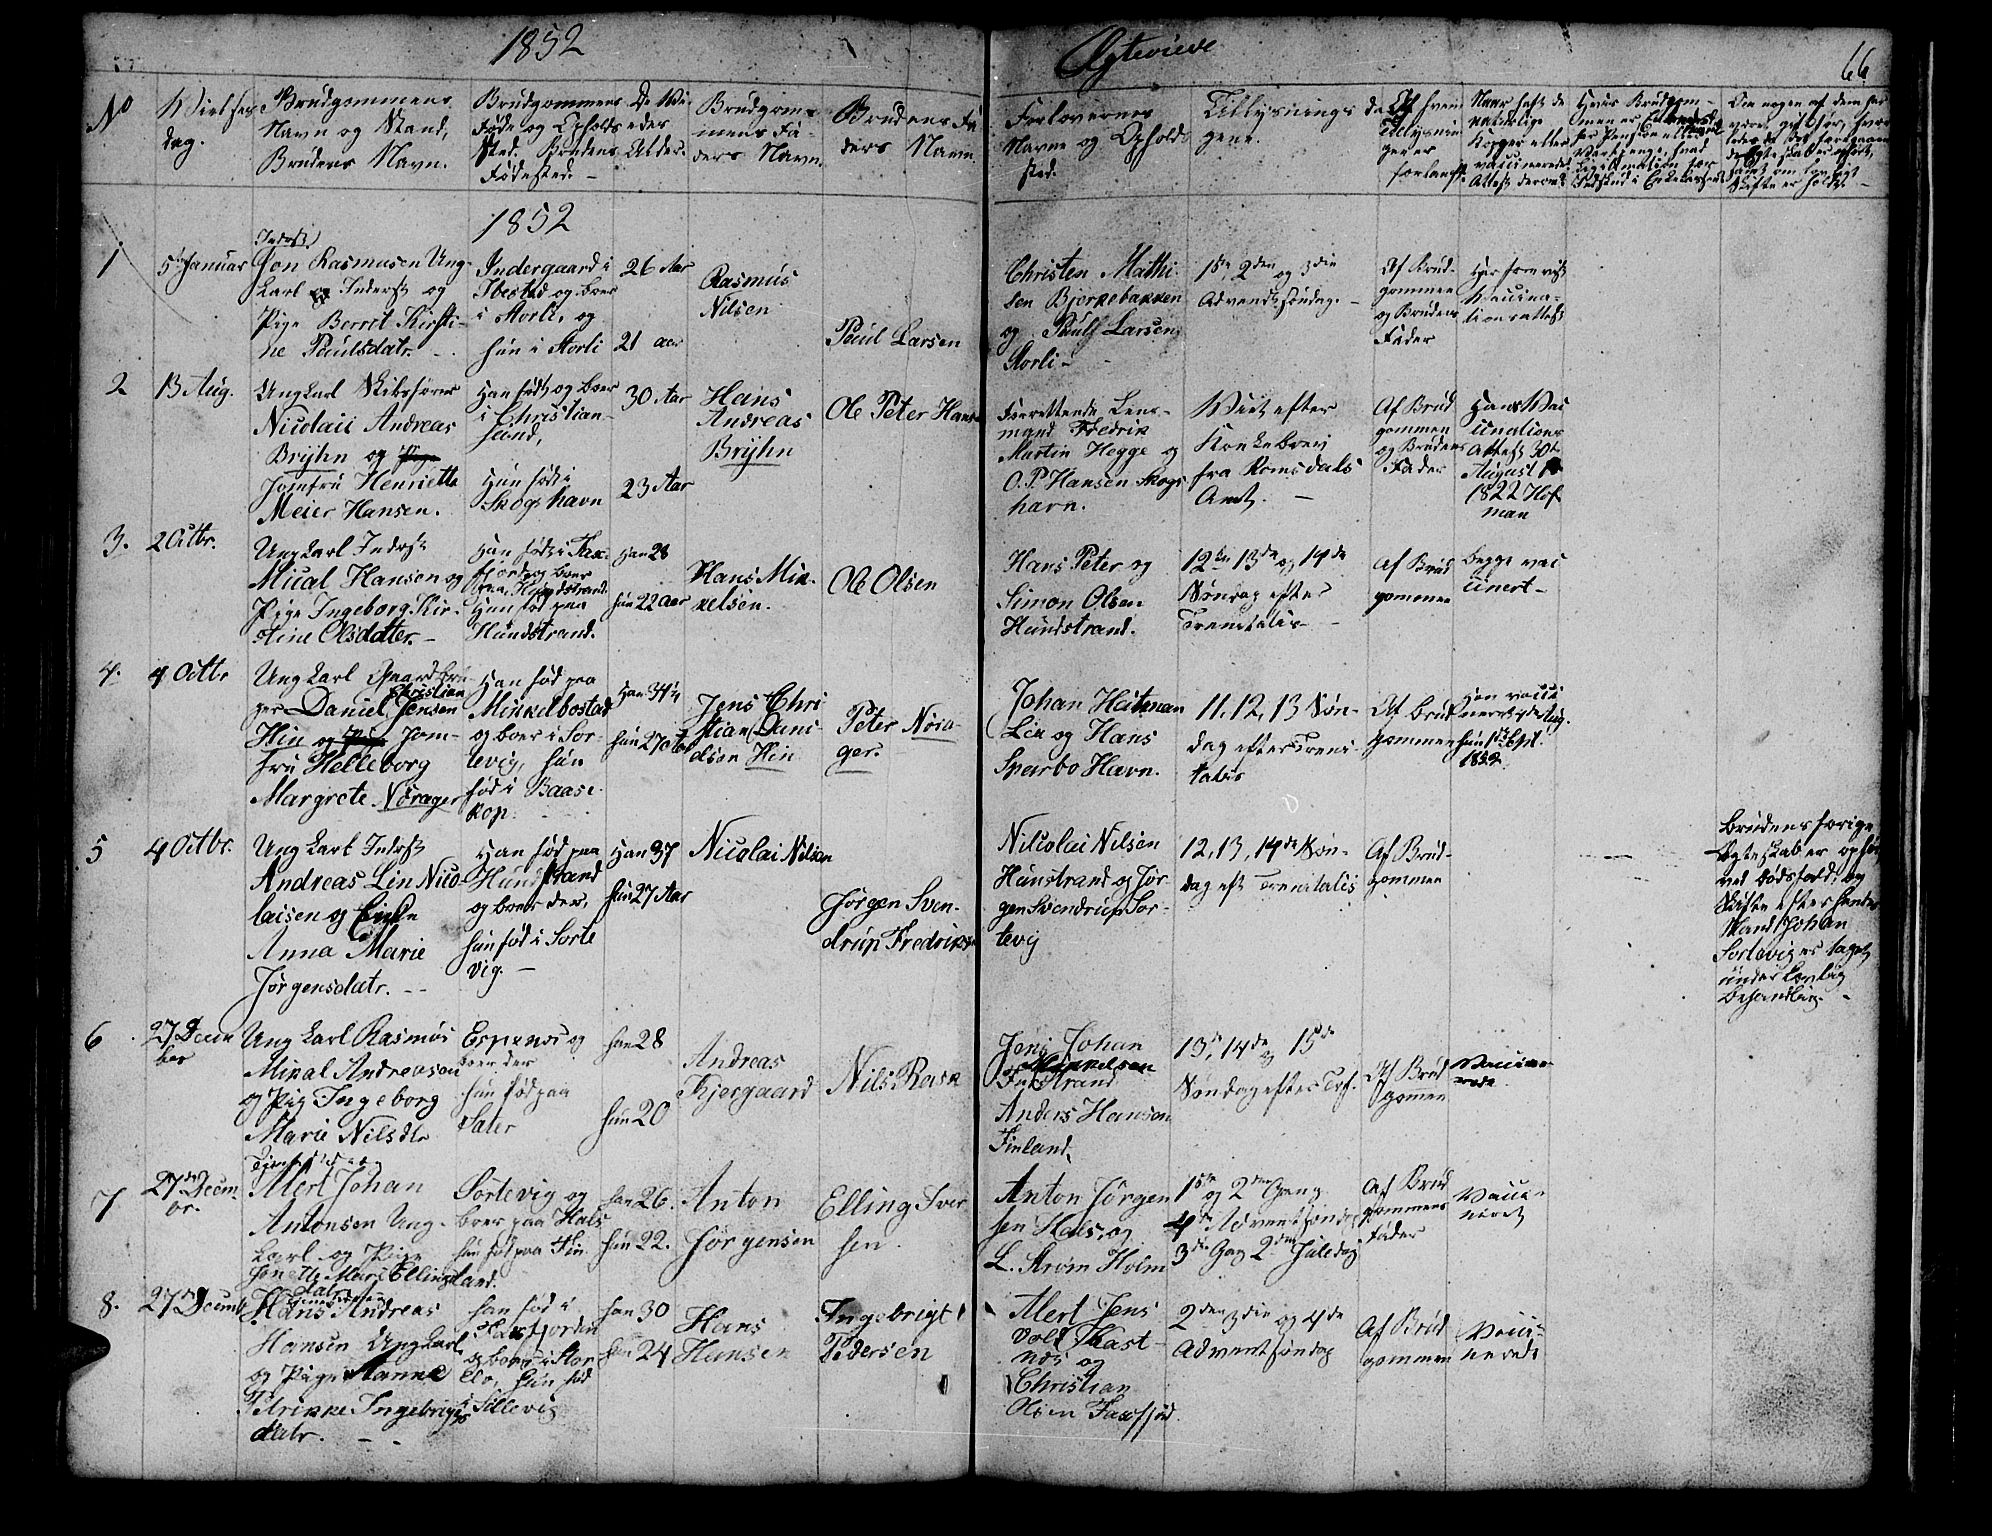 1852
Ægteviede
66
No
Vielses
dag.
Brudgommens
Navn og Stand,
Brudens Navn.
Brudgommens
Føde og Opholds
Sted. Brudens
Fødested. –
De Vi
edes
Alder.
Brudgom-
mens Fa-
ders Navn.
Brudens Fa
ders Navn
Forlovernes
Navne og Opholds
sted.
Tillysnings da
gene.
Af hvem
tillysnin
gen er
forlangt.
Naar hafte de
naturlige
Kopper eller
vaccinerede
Attest derom
Om nogen af dem har
været gift før, hvor
1852
1
5te Januar
Inderst
Jon Rasmusen Ung-
karl Inderst og
Pige Berret Kirsti-
ne Paulsdatr.
Indergaard i
Ibestad og boer
i Storli, og
hun i Storli
26 Aar
21 aar
Rasmus
Nilsen
Paul Larsen
Christen Mathi-
sen Bjerkebakken
og Paul Larsen
Storli –
1ste 2den og 3die
Adventssøndag. –
Af Brud-
gommen
og Brudens
Fader
Har forevist
Vaccina-
tionsattest
2
13 Aug.
Ungkarl Skibsfører
Nicolaii Andreas
Bryhn og Pige
Jomfru Henriette
Meier Hansen.
Han født og boer
i Christian-
sund,
Hun født i
Skogshavn
30 Aar
23 Aar
Hans
Andreas
Bryhn
Ole Peter Hansen
Forrettende Lens-
mand Fredrik
Martin Hegge og
O. P. Hansen Skogs
havn.
Viet efter
Kongebrev
fra Romsdals
Amt. –
Af Brud
gommen
og Brudens
Fader
Hans Vac
cinations
Attest 30te
August
1822 Hof
man
3.
2 Octbr.
Ungkarl Inderst
Mical Hansen og
Pige Ingeborg Kir-
stine Olsdatter. –
Han født i Tax-
fjord og boer
paa Hundstrand.
Hun fød paa
Hundstrand.
Han 28
hun 22 aar
Hans Mik-
kelsen.
Ole Olsen
Hans Peter og
Simon Olsen
Hundstrand.
12te 13de og 14de
Søndag efter
Trenitatis –
Af Brud
gommen
begge vac
cinert –
4.
4 Octbr
Ungkarl Gaardbru-
ger Daniel Christian Jensen
Hin og Pige Jom-
fru Helleborg
Margrete Nørager
Han fød paa
Mikkelbostad
og boer i Sor-
tevig, hun
fød i Baase-
kop.
Han 34¼
hun 27
Jens Chri
stian Dani
elsen Hin
Peter Nøra-
ger.
Johan Heitman
Lin og Hans
Sparbo Havn.
11, 12, 13 Søn-
dag efter Treni-
tatis
Af Brud
gommen
5
4 Octbr.
Ungkarl Inderst
Andreas Lin Nico-
laisen og Enke
Anna Marie
Jørgensdatr. –
Han fød paa
Hundstrand
og boer der,
hun fød i Sorte
vig. –
Han 37
hun 27 Aar
Nicolai Nilsen
Jørgen Sven-
drup Fredriksen
Nilcolai Nilsen
Hunstrand og Jør-
gen Svendrup Sor-
tevig
12, 13, 14de Søn-
dag eft Trenitatis
Af Brud-
gommen
Brudens forrige
Egteskab er ophørt
ved Dødsfald, og
Skifte efter hendes
Mand Johan
Sortevig er taget
under Lovlig
behandling. –
6
27 Decem
ber
Ungkarl Rasmus
Mikal Andreasen
og Pig Ingeborg
Marie Nilsdtr
Espenes og
boer der
hun fød paa
Sater
han 28
hun 20
Andreas
Kjergaard
Nils Rask
Jens Johan
Mikkelsen
Anders Hansen
Finland.
13de, 14de og 15de
Søndag efter Tref.
Af Brud
gomen
Vaccine-
rede.
7
27de Decem
br.
Alert Johan
Antonsen Ung-
karl og Pige
Jonette Mari Ellings
datr
Sortevig og
boer paa Hals
hun fød paa Fin
land.
han 26.
hun 22.
Anton
Jørgensen
Elling Iver
sen.
Anton Jørgen
sen Hals, og
L. Strøm Holm
1ste og 2den Gang
4de Adventsøndag
3die Gag 2den Juledag
Af Brud
gommens
Fader
Vacci-
neret
8.
27de Decemb
Hans Andreas
Hansen Ungkarl
og Pige Hanna
Petrikke Ingebrigts
datr. –
han fød i
Taxfjorden
og boer i Stor
elv, hun fød
i Sillevig
han 30
hun 24
Hans
Hansen
Ingebrigt
Pedersen
Alert Jens
vold Kast-
næs og
Christian
Olsen Faxfjord.
2den 3die og 4de
Adventsøndag
Af Brud
gommen
Vacci-
nerede